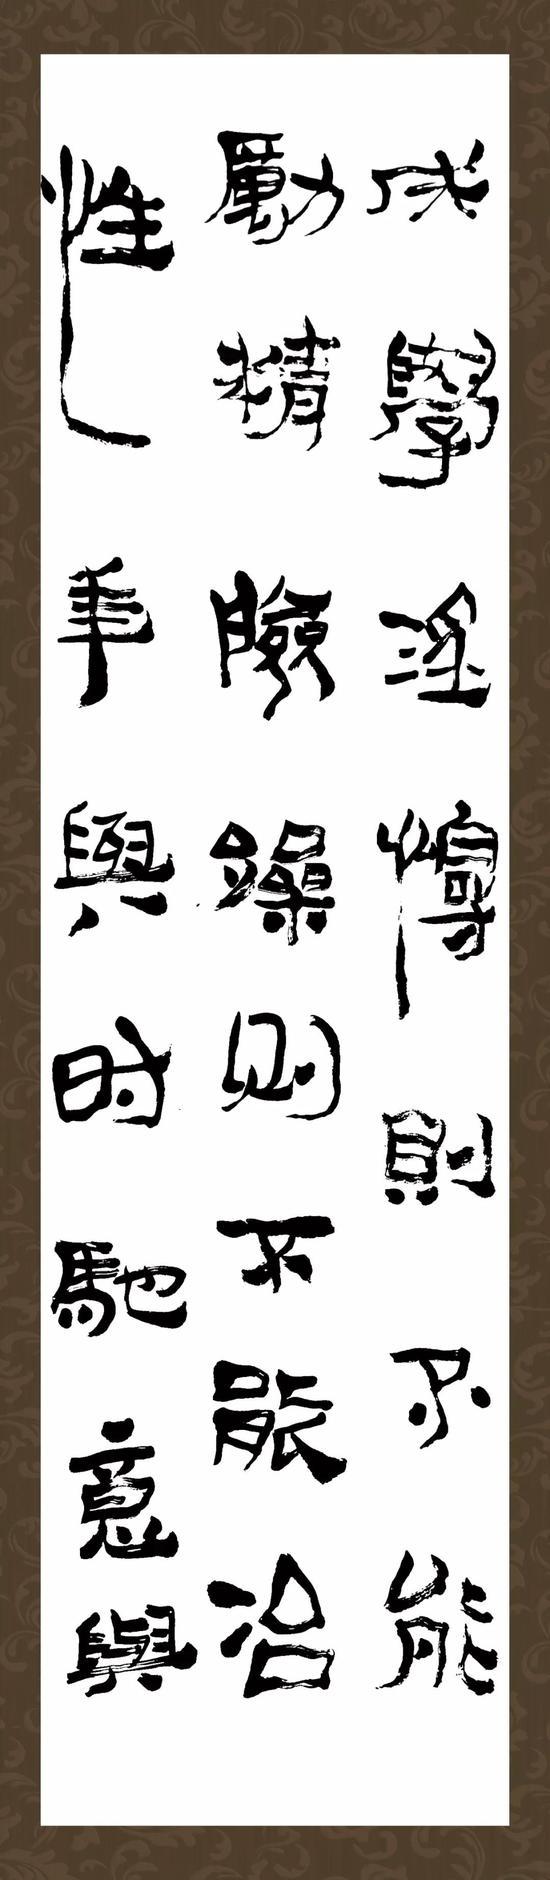 成學淫慢則不能
勵精險躁則不能冶
性年與時馳意與